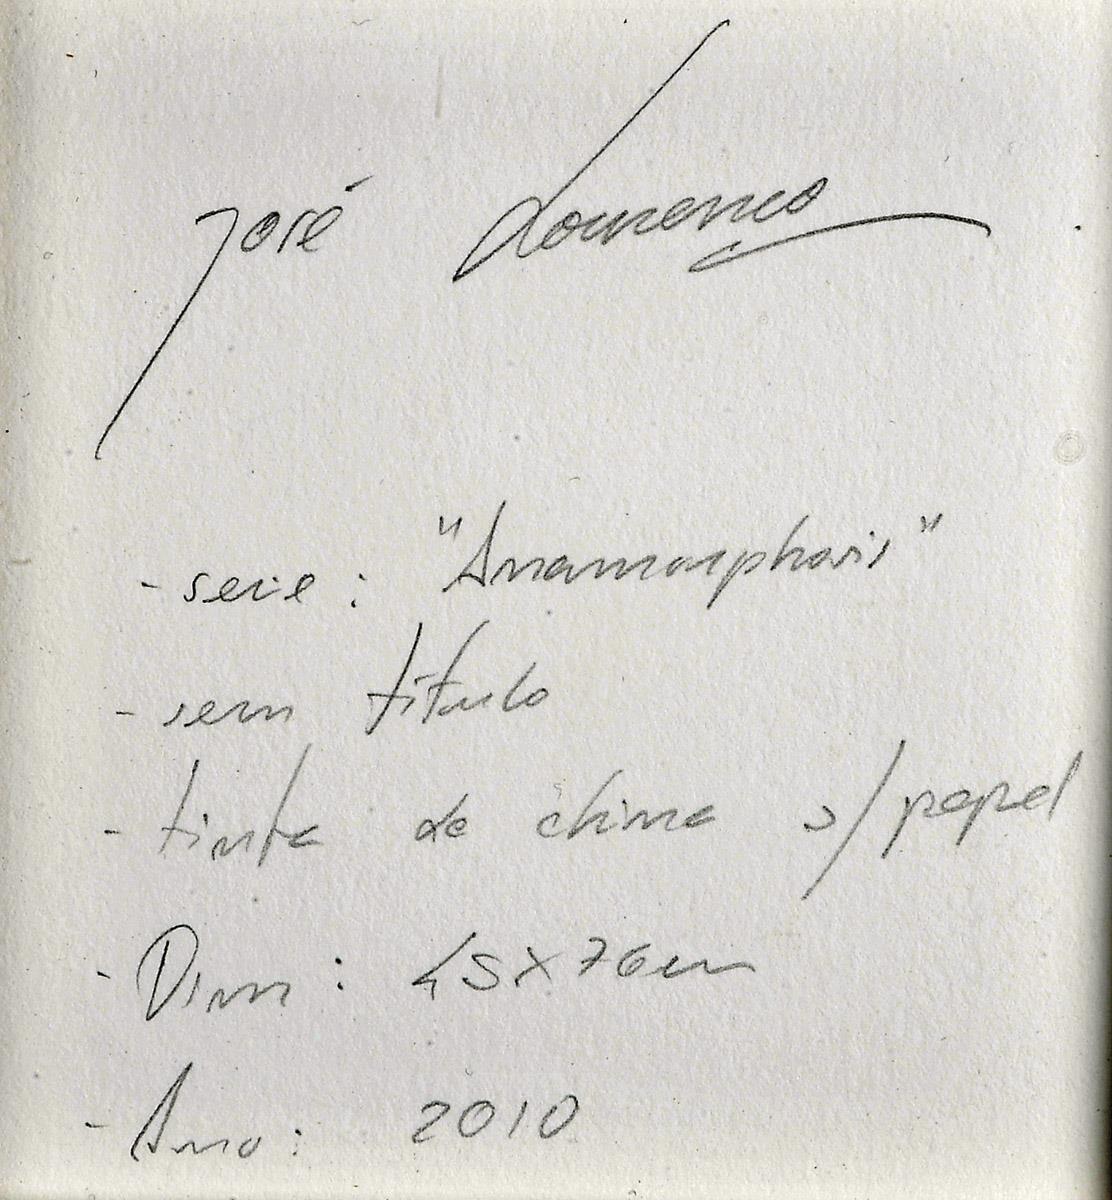 José Lourenço
- serie : "Anamorphosis"
- sem título
- tinta da china s/ papel
- Dim : 45 x 76 cm
- Ano : 2010